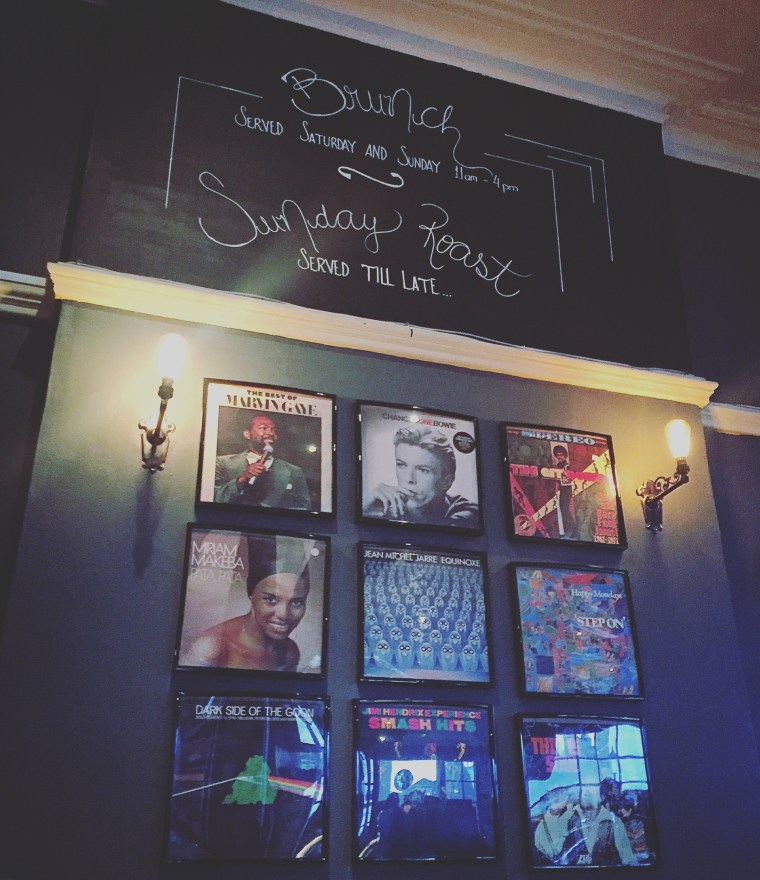 Brunch
SERVED SATURDAY AND SUNDAY 11am - 4pm
Sunday Roast
SERVED TILL LATE...
THE BEST OF
MARVIN GAYE
CHANGESONEBOWIE
STEREO
THIS
1967-1971
MIRIAM
MAKEBA
PATA PATA
JEAN MICHEL JARRE EQUINOXE
Happy Mondays
'STEP ON'
DARK SIDE OF THE GOON
JIMI HENDRIX EXPERIENCE
SMASH HITS